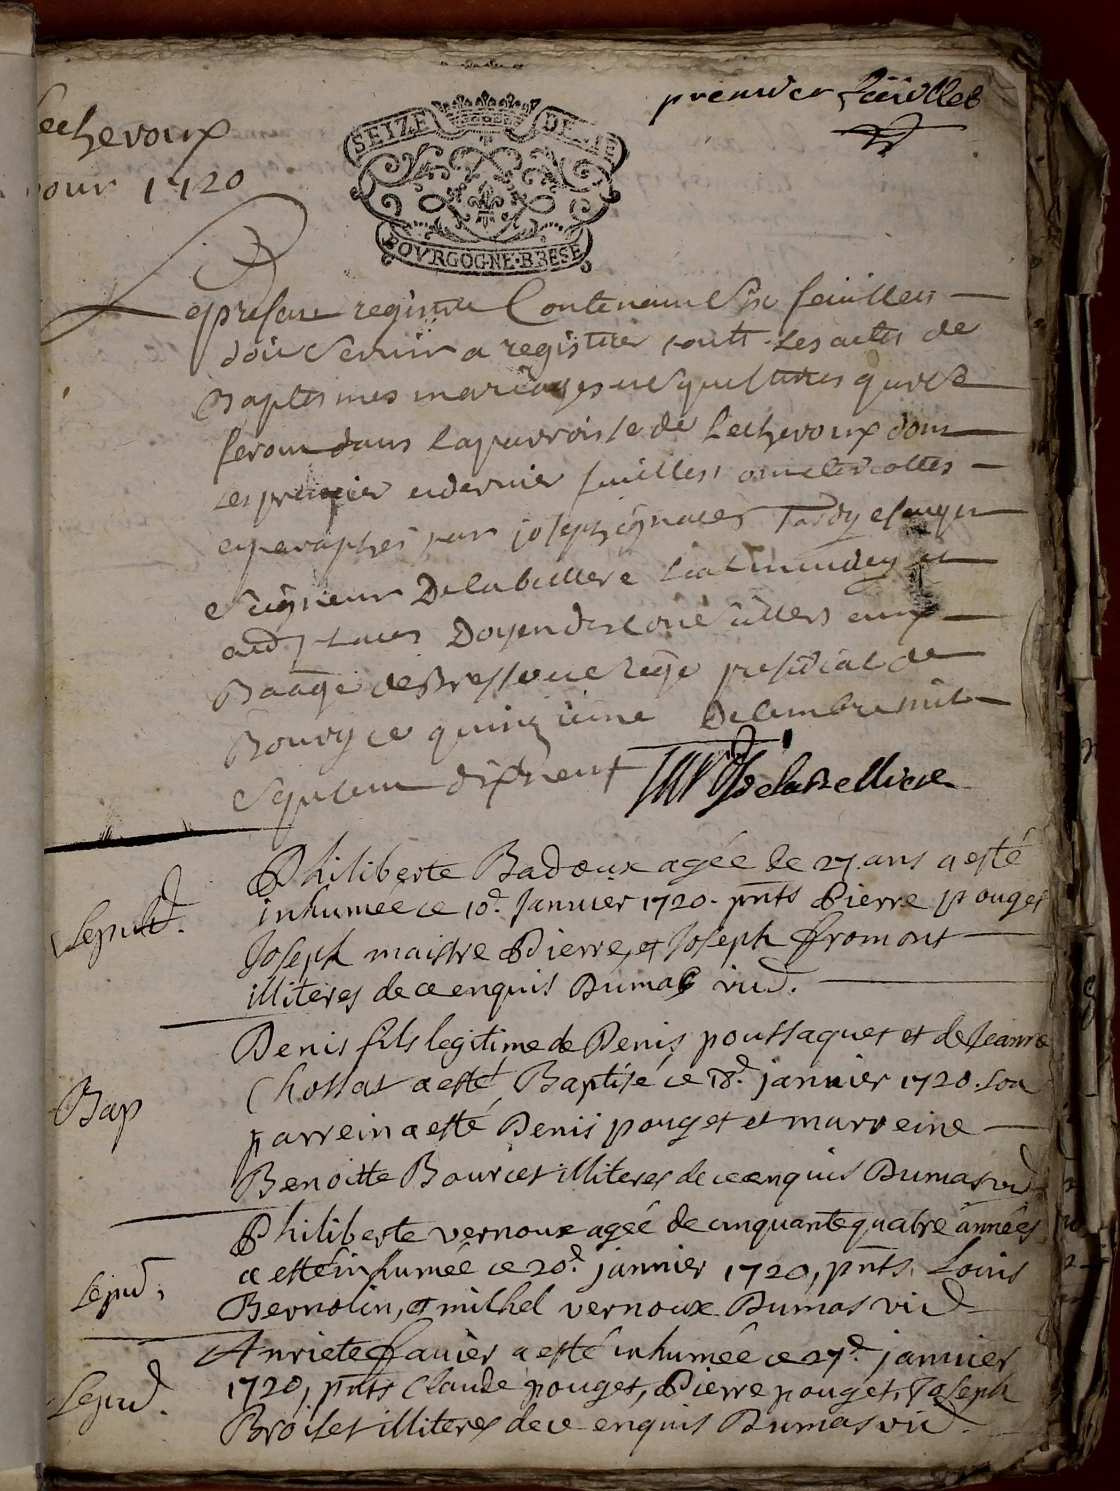 premier feüillet
Lescheroux
pour 1720
SEIZE DEN
BOVRGOGNE·BRESE
Le presant registre Contenant Six feuillets
doit Servir a registrer toutt les actes de
Baptesmes mariages et Sepultures qui se
feront dans la parroisse de Lescheroux dont
les premier et dernier feuillets ont été cottes
et paraphés par joseph ignaces Tardy escuyer
Seigneur De la belliere
Doyen des conseillers aux
Baage de Bresse et siege presidial de
Bourg ce quinzieme Decembre mil
Sept cent dix neuf Tardy de la Belliere
Sepult.
Philiberte Badoux agée de 27 ans a esté
inhumée ce 10e. Janvier 1720. pnts Pierre pouget
Joseph maistre Pierre, et Joseph fromont
illiteres de ce enquis Dumas vic.
Bap
Denis fils legitime de Denis poussaquet et de Jeanne
Chossat a esté Baptisé ce 18e. janvier 1720. son
parrein a esté Denis pouget et marreine
Benoitte Bouriet illiteres de ce enquis Dumas vic
Sepul.
Philiberte vernoux agée de cinquante quatre années
a esté inhumée ce 20e. janvier 1720, pnts. Louis
Bernolin, et michel vernoux Dumas vic
Sepul.
Anriete favier a esté inhumée ce 27e. janvier
1720, pnts Claude pouget, Pierre pouget, Joseph
Broilet illiteres de ce enquis Dumas vic.